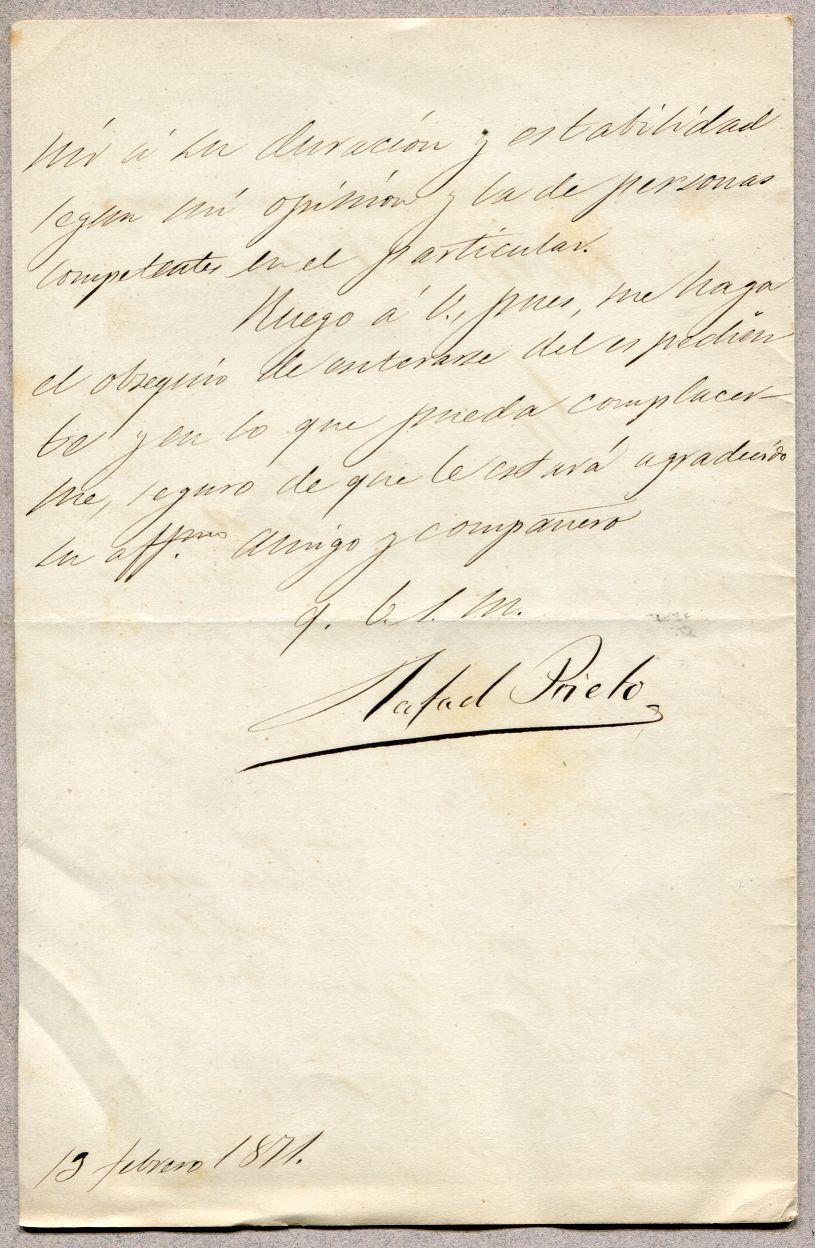 nir á su duración y estabilidad
segun mi opinión y la de personas
competentes en el particular.
Ruego á V., pues, me haga
el obsequio de enterarse del espedien
te y en lo que pueda complacer-
me, seguro de que le estará agradecido
su affmo amigo y compañero
q. b. s. m.
Rafael Prieto
13 febrero 1871.